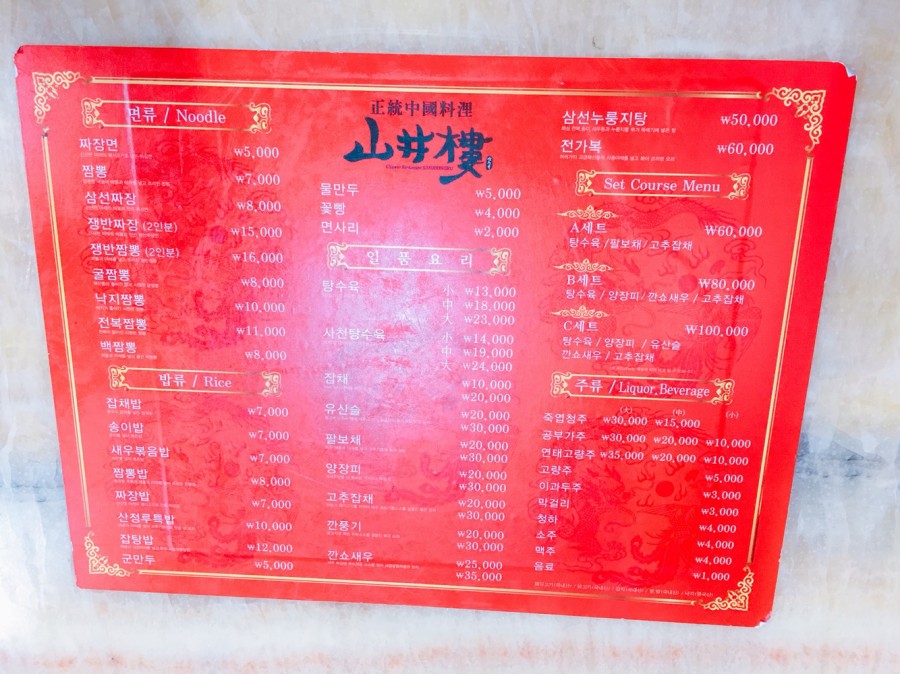 면류 / Noodle
짜장면 ₩5,000
짬뽕 ₩7,000
삼선짜장 ₩8,000
쟁반짜장 (2인분) ₩15,000
쟁반짬뽕 (2인분) ₩16,000
굴짬뽕 ₩8,000
낙지짬뽕 ₩10,000
전복짬뽕 ₩11,000
백짬뽕 ₩8,000
밥류 / Rice
잡채밥 ₩7,000
송이밥 ₩7,000
새우볶음밥 ₩7,000
짬뽕밥 ₩8,000
짜장밥 ₩7,000
산정루특밥 ₩10,000
잡탕밥 ₩12,000
군만두 ₩5,000
正統中國料理
山井樓
물만두 ₩5,000
꽃빵 ₩4,000
면사리 ₩2,000
일품요리
탕수육 小 ₩13,000
中 ₩18,000
大 ₩23,000
사천탕수육 小 ₩14,000
中 ₩19,000
大 ₩24,000
잡채 ₩10,000
₩20,000
유산슬 ₩20,000
₩30,000
팔보채 ₩20,000
₩30,000
양장피 ₩20,000
₩30,000
고추잡채 ₩20,000
₩30,000
깐풍기 ₩20,000
₩30,000
깐쇼새우 ₩25,000
₩35,000
삼선누룽지탕 ₩50,000
전가복 ₩60,000
Set Course Menu
A세트 ₩60,000
탕수육 / 팔보채 / 고추잡채
B세트 ₩80,000
탕수육 / 양장피 / 깐쇼새우 / 고추잡채
C세트 ₩100,000
탕수육 / 양장피 / 유산슬
깐쇼새우 / 고추잡채
주류 / Liquor.Beverage
(大) (中) (小)
죽엽청주 ₩30,000 ₩15,000
공부가주 ₩30,000 ₩20,000 ₩10,000
연태고량주 ₩35,000 ₩20,000 ₩10,000
고량주 ₩5,000
이과두주 ₩3,000
막걸리 ₩3,000
청하 ₩4,000
소주 ₩4,000
맥주 ₩4,000
음료 ₩1,000